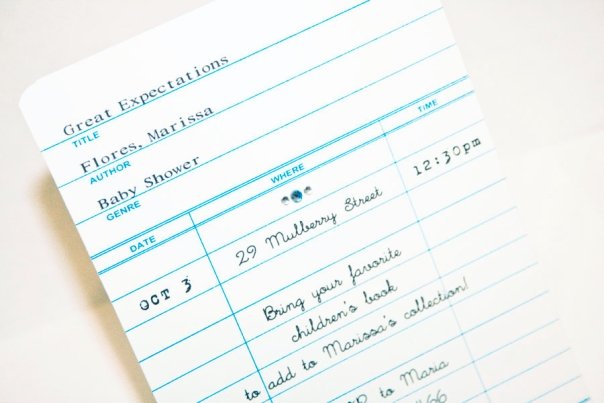 Great Expectations
TITLE
Flores, Marissa
AUTHOR
Baby Shower
GENRE
DATE WHERE TIME
OCT 3 29 Mulberry Street 12:30pm
Bring your favorite
children's book
to add to Marissa's collection!
to Maria